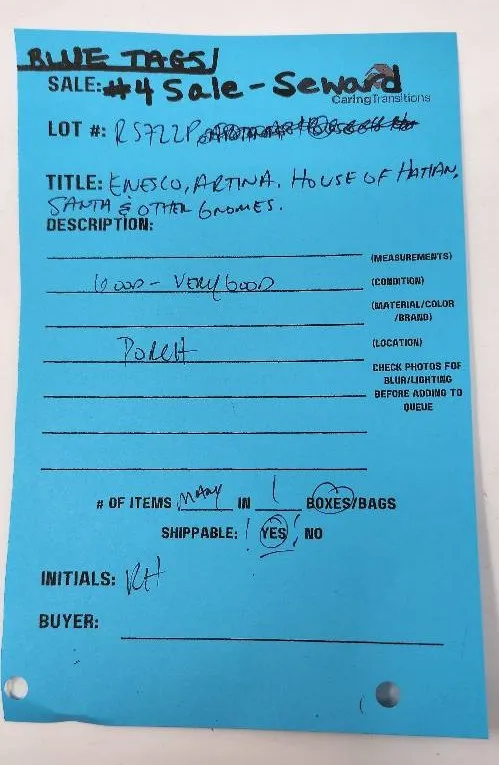 BLUE TAGS/
SALE: #4 Sale - Seward
CaringTransitions
LOT #: RS722P
TITLE: ENESCO, ARTINA. HOUSE OF HATIAN,
SANTA & OTHER GNOMES.
DESCRIPTION:
(MEASUREMENTS)
GOOD - VERY GOOD (CONDITION)
(MATERIAL/COLOR
/BRAND)
PORCH (LOCATION)
CHECK PHOTOS FOR
BLUR/LIGHTING
BEFORE ADDING TO
QUEUE
# OF ITEMS MANY IN 1 BOXES/BAGS
SHIPPABLE: YES/ NO
INITIALS: RH
BUYER: